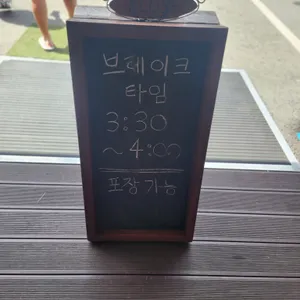 브레이크
타임
3:30
~4:00
포장가능